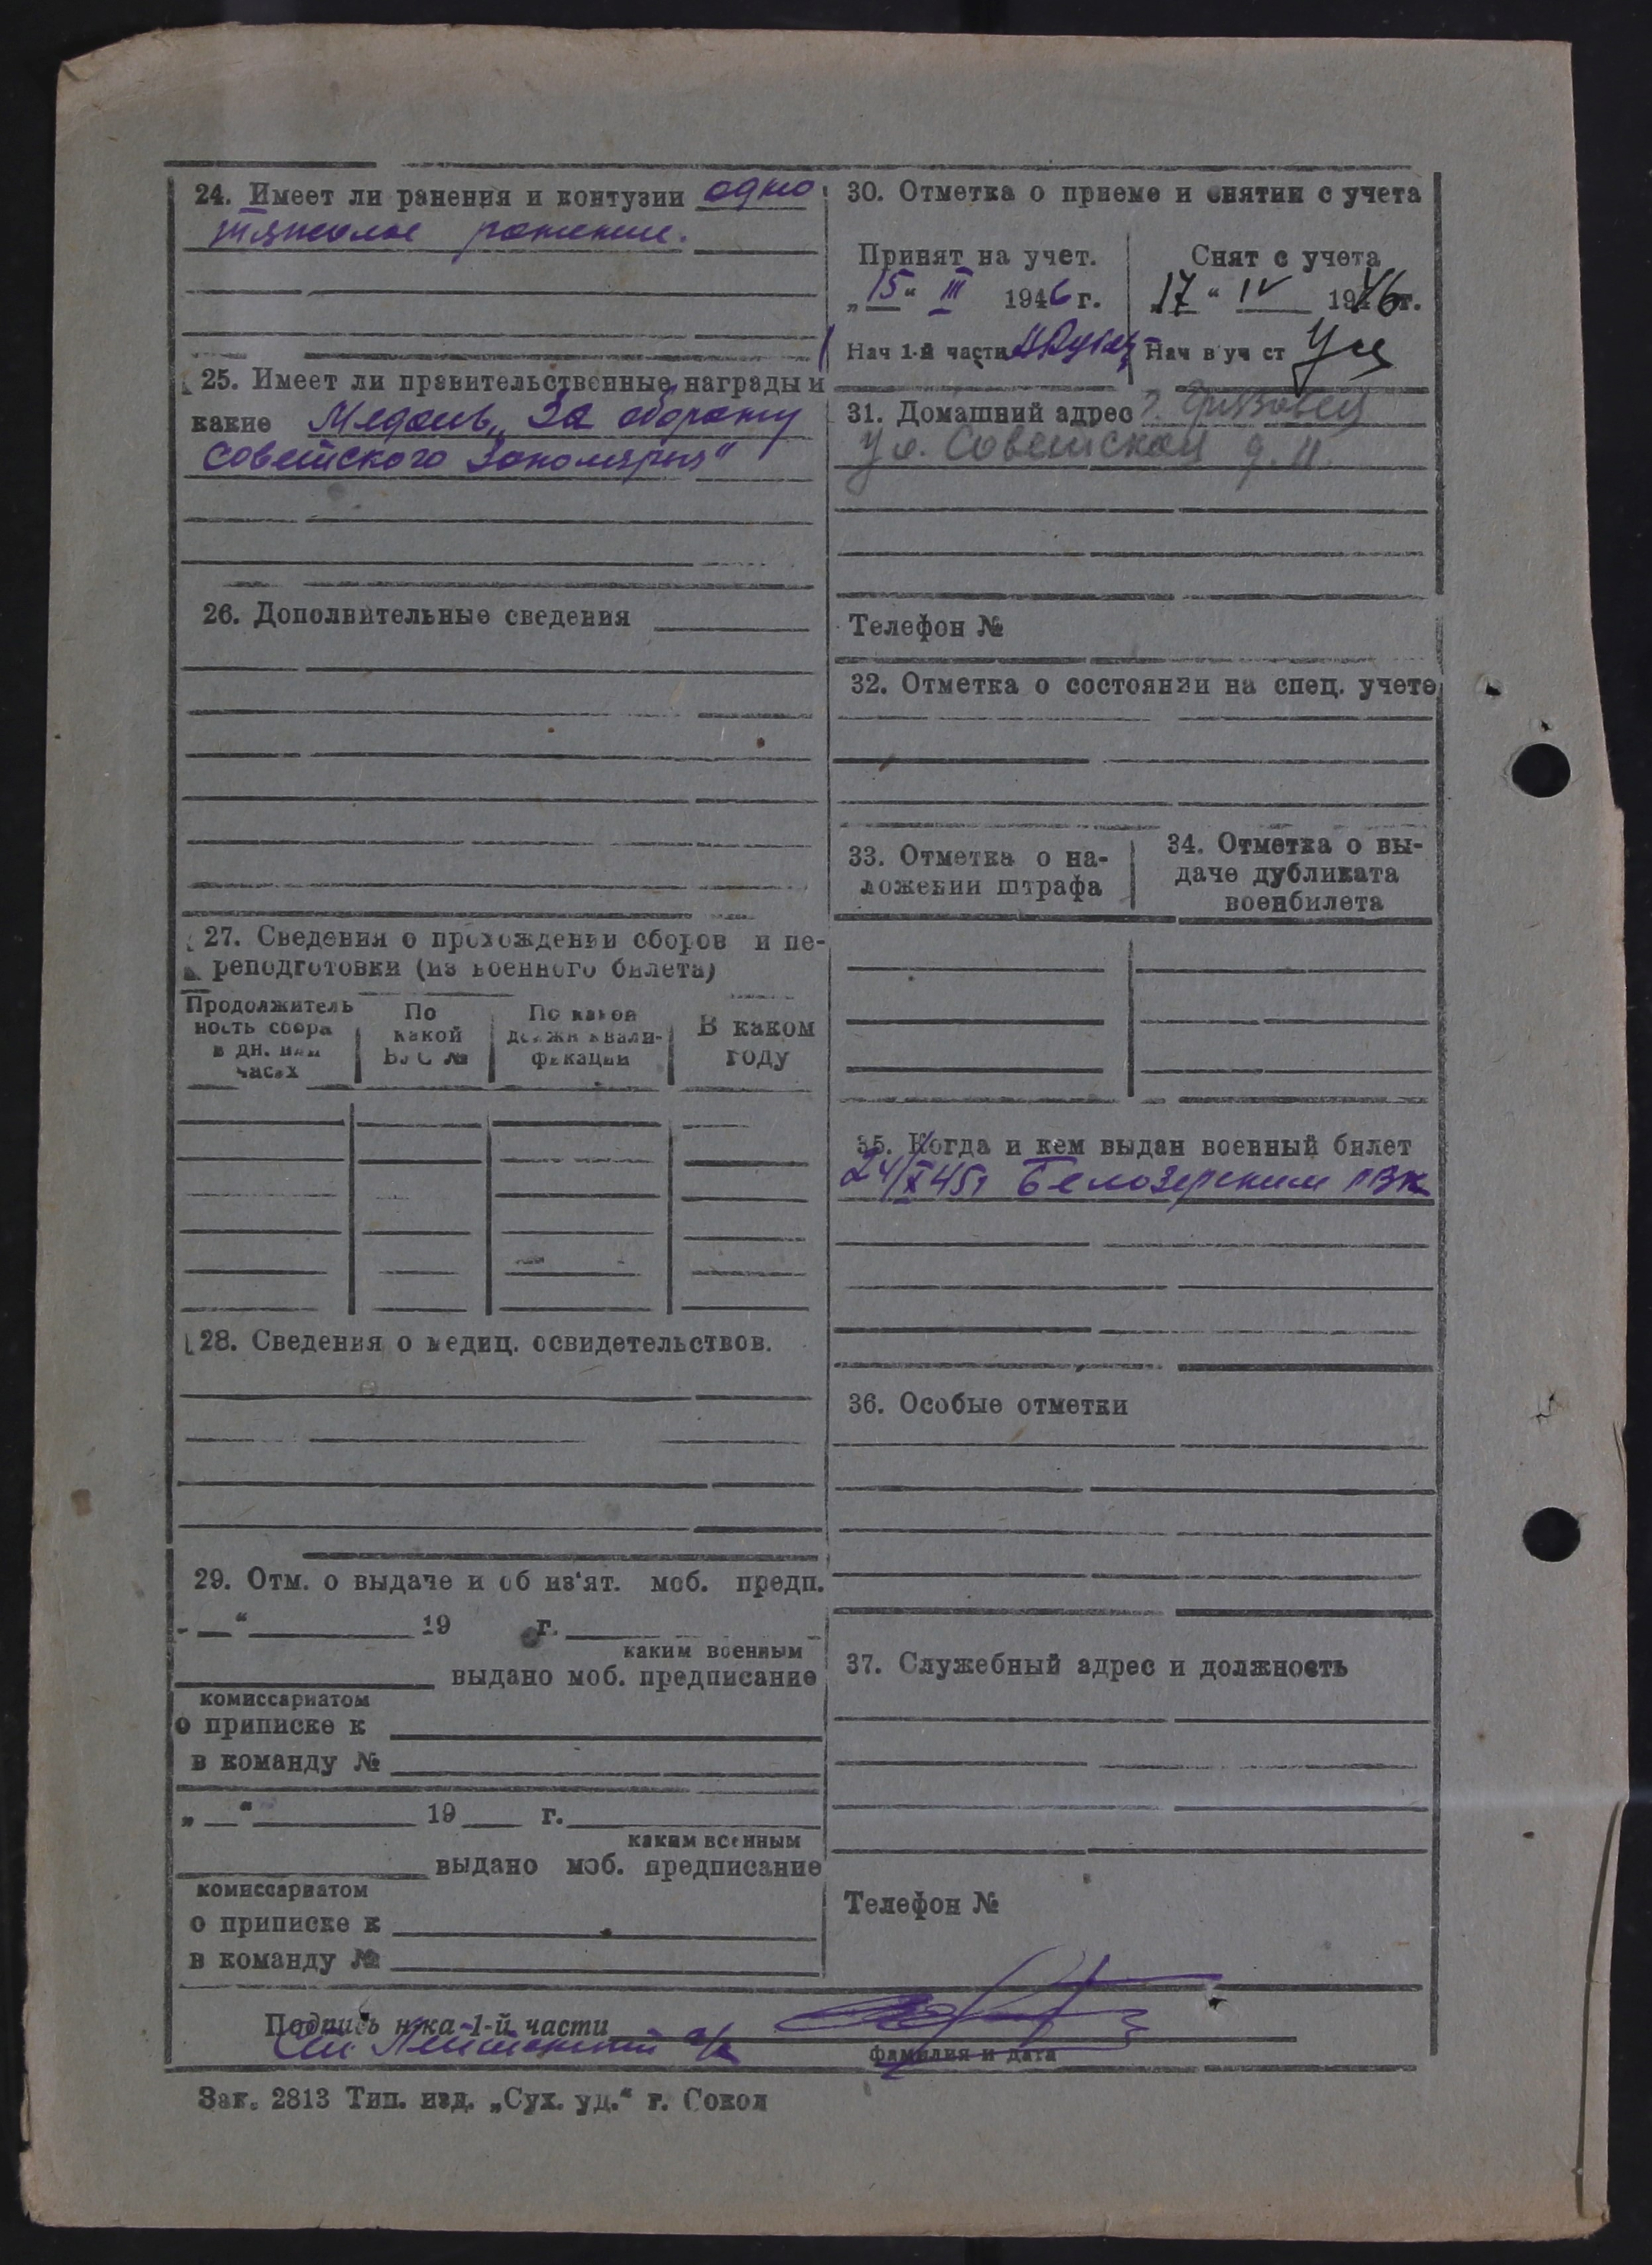 24. Имеет ли ранения и контузии одно
тяжелое ранение.
25. Имеет ли правительственные награды и
какие Медаль „За оборону
Советского Заполярья"
26. Дополнительные сведения
27. Сведения о прохождении сборов и пе-
реподготовки (из военного билета)
Продолжитель
ность сбора
в дн. или
часах
По
какой
ВУС №
По какой
должн квали-
фикации
В каком
году
28. Сведения о медиц. освидетельствов.
29. Отм. о выдаче и об из'ят. моб. предп.
„ “ 19 г.
каким военным
выдано моб. предписание
комиссариатом
о приписке к
в команду №
„ “ 19 г.
каким военным
выдано моб. предписание
комиссариатом
о приписке к
в команду №
30. Отметка о приеме и снятии с учета
Принят на учет.
„15“ III 1946 г.
Нач 1-й части
Снят с учета
17 “ IV 1946 г.
Нач в уч ст
31. Домашний адрес г.
ул. Советская д. 11.
Телефон №
32. Отметка о состоянии на спец. учете
33. Отметка о на-
ложении штрафа
34. Отметка о вы-
даче дубликата
военбилета
35. Когда и кем выдан военный билет
24/X 45г Белозерским РВК
36. Особые отметки
37. Служебный адрес и должность
Телефон №
Подпись н-ка 1-й части
Ст. Лейтенант а/с
фамилия и дата
Зак. 2813 Тип. изд. „Сух. уд.“ г. Сокол